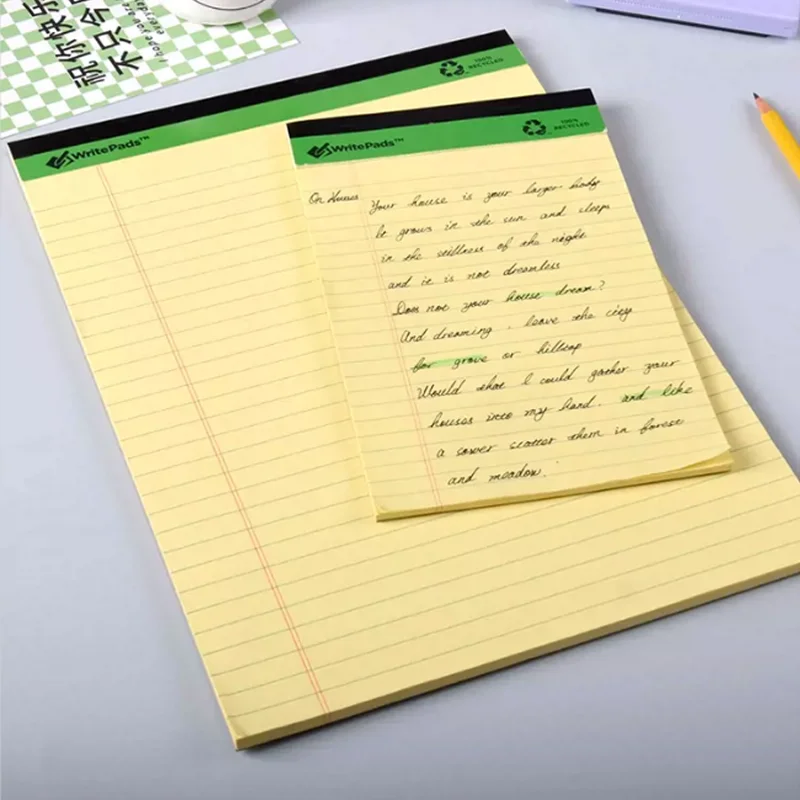 祝你快乐
不只今
I hope you are
everyday
WritePads™
100%
RECYCLED
WritePads™
100%
RECYCLED
On Houses
Your house is your larger body
It grows in the sun and sleeps
in the stillness of the night
and it is not dreamless
Does not your house dream?
And dreaming, leave the city
for grove or hilltop
Would that I could gather your
houses into my hand, and like
a sower scatter them in forest
and meadow.